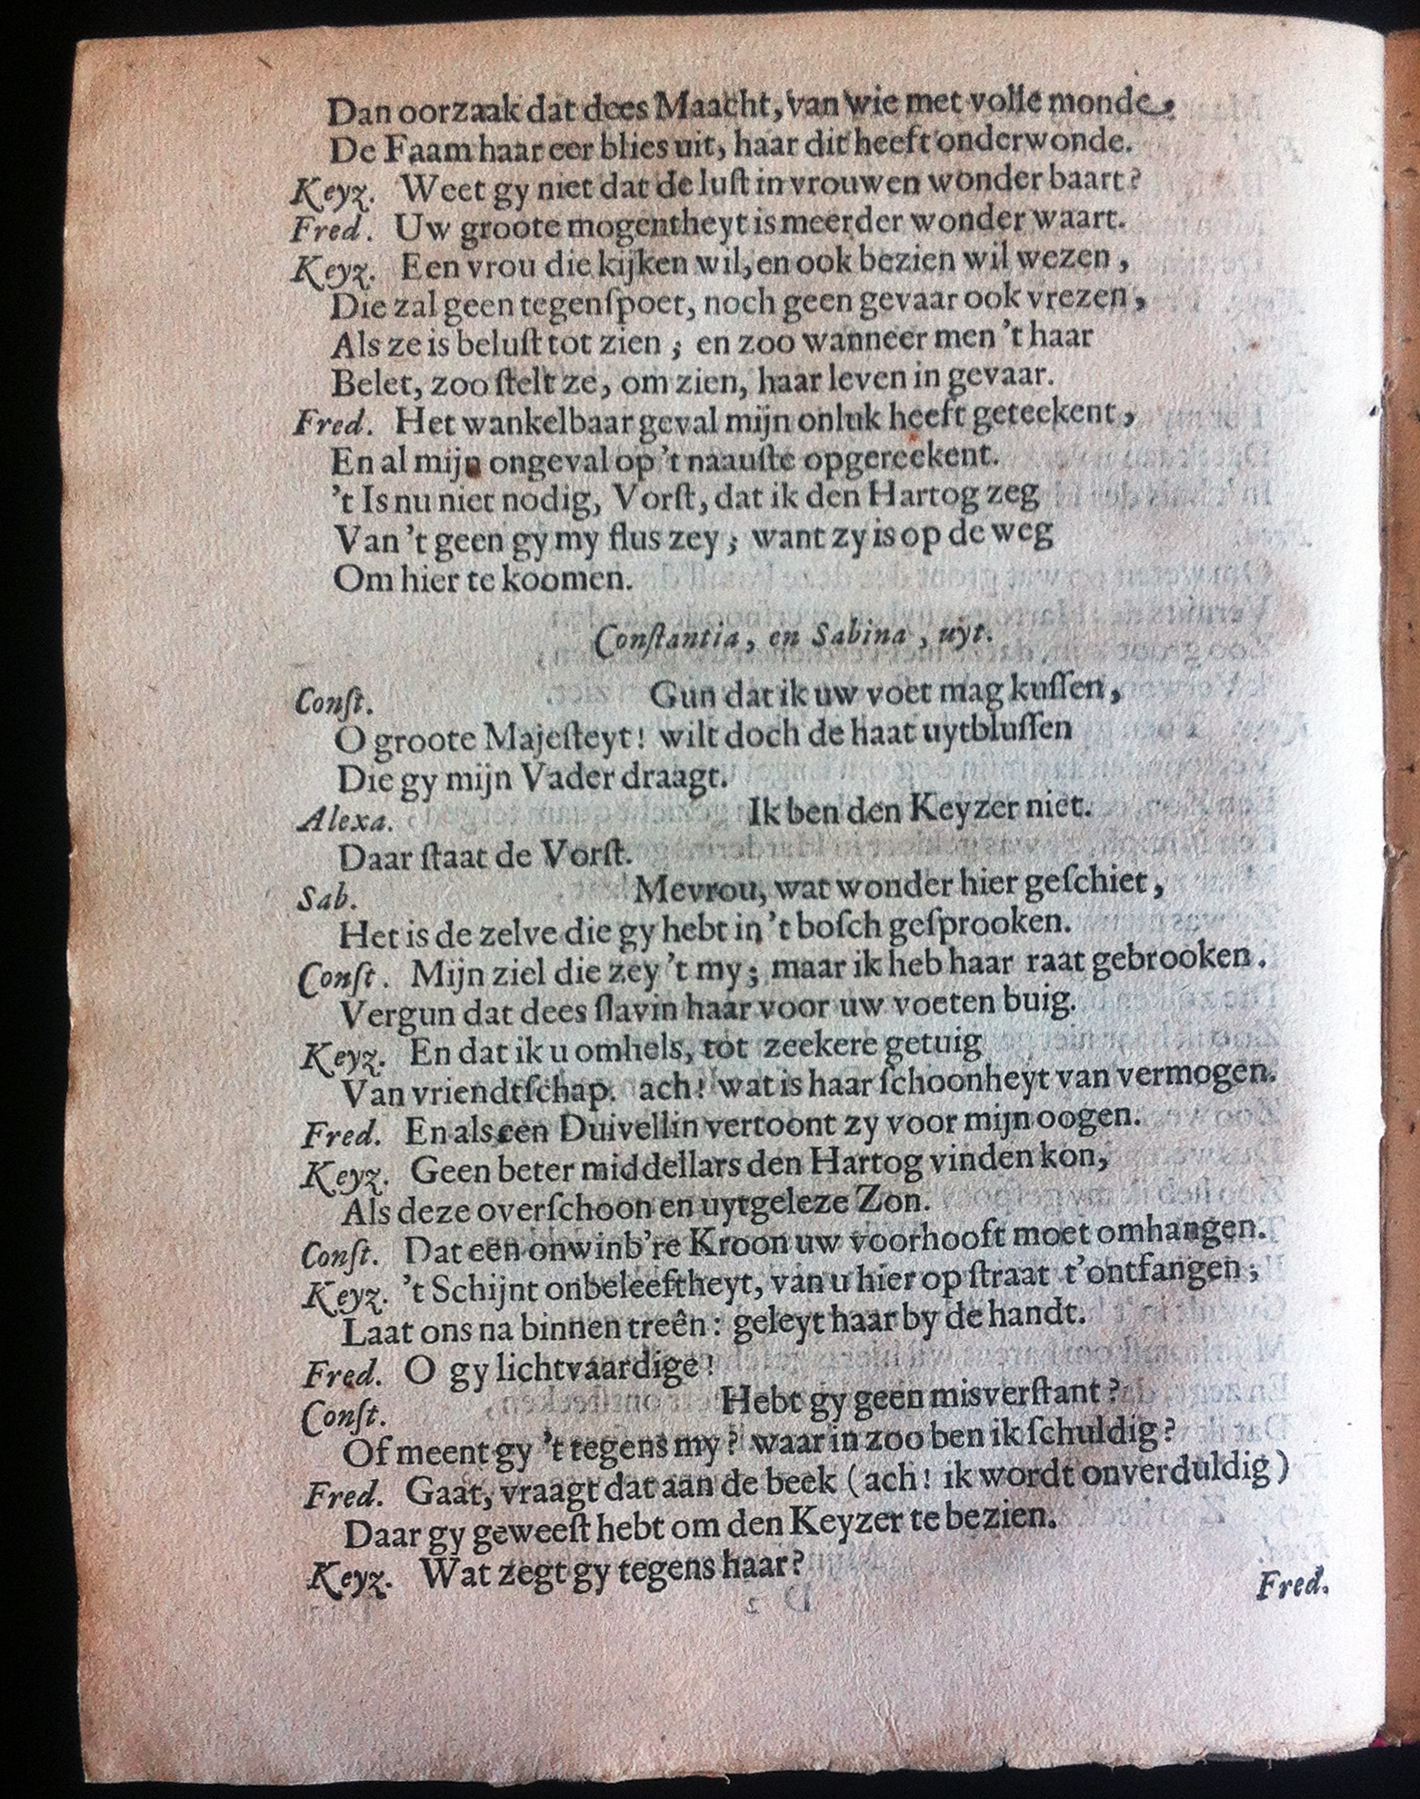 Dan oorzaak dat dees Maacht, van wie met volle monde,
De Faam haar eer blies uit, haar dit heeft onderwonde.
Keyz. Weet gy niet dat de luſt in vrouwen wonder baart?
Fred. Uw groote mogentheyt is meerder wonder waart.
Keyz. Een vrou die kijken wil, en ook bezien wil wezen,
Die zal geen tegenſpoet, noch geen gevaar ook vrezen,
Als ze is beluſt tot zien; en zoo wanneer men 't haar
Belet, zoo ſtelt ze, om zien, haar leven in gevaar.
Fred. Het wankelbaar geval mijn onluk heeft geteekent,
En al mijn ongeval op 't naauſte opgereekent.
't Is nu niet nodig, Vorſt, dat ik den Hartog zeg
Van 't geen gy my flus zey; want zy is op de weg
Om hier te koomen.
Conſtantia, en Sabina, uyt.
Conſt. Gun dat ik uw voet mag kuſſen,
O groote Majeſteyt! wilt doch de haat uytbluſſen
Die gy mijn Vader draagt.
Alexa. Ik ben den Keyzer niet.
Daar ſtaat de Vorſt.
Sab. Mevrou, wat wonder hier geſchiet,
Het is de zelve die gy hebt in 't boſch geſprooken.
Conſt. Mijn ziel die zey 't my; maar ik heb haar raat gebrooken.
Vergun dat dees ſlavin haar voor uw voeten buig.
Keyz. En dat ik u omhels, tot zeekere getuig
Van vriendtſchap. ach! wat is haar ſchoonheyt van vermogen.
Fred. En als een Duivellin vertoont zy voor mijn oogen.
Keyz. Geen beter middellars den Hartog vinden kon,
Als deze overſchoon en uytgeleze Zon.
Conſt. Dat een onwinb're Kroon uw voorhooft moet omhangen.
Keyz. 't Schijnt onbeleeftheyt, van u hier op ſtraat t'ontfangen;
Laat ons na binnen treên: geleyt haar by de handt.
Fred. O gy lichtvaardige!
Conſt. Hebt gy geen misverſtant?
Of meent gy 't tegens my? waar in zoo ben ik ſchuldig?
Fred. Gaat, vraagt dat aan de beek (ach! ik wordt onverduldig)
Daar gy geweeſt hebt om den Keyzer te bezien.
Keyz. Wat zegt gy tegens haar?
Fred.